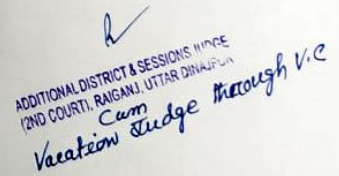 ADDITIONAL DISTRICT & SESSIONS JUDGE
(2ND COURT), RAIGANJ, UTTAR DINAJPUR
Cum
Vacation Judge through V.C